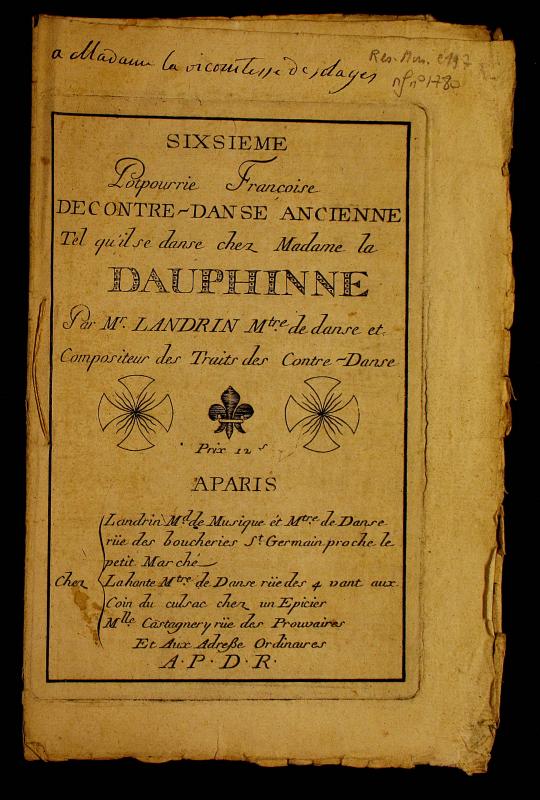 a Madame la vicomtesse desdages
Res. Mus. 297
nf n° 1780
SIXSIEME
Potpourrie Françoise
DE CONTRE-DANSE ANCIENNE
Tel qu'il se danse chez Madame la
DAUPHINNE
Par Mr. LANDRIN Mtre de danse et
Compositeur des Traits des Contre-Danse
Prix 12 s
A PARIS
Landrin Md de Musique ét Mtre de Danse
rüe des boucheries St Germain proche le
petit Marché
Chez Lahante Mtre de Danse rüe des 4 vant aux
Coin du culsac chez un Epicier
Mlle Castagnery rüe des Prouvaires
Et Aux Adreße Ordinaires
A.P.D.R.